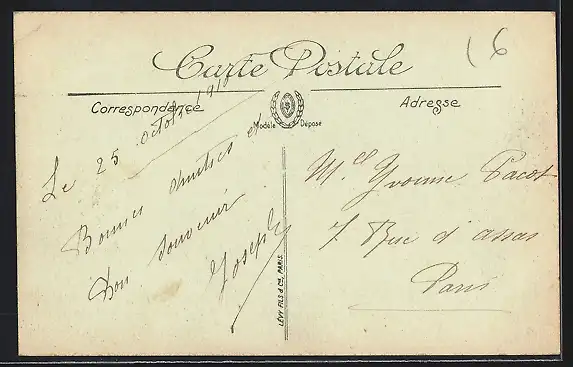 Carte Postale
Correspondance
Adresse
Modèle Déposé
Le 25 octobre
Bonnes amitiés et
bon souvenir
Joseph
LÉVY FILS & Cie, PARIS.
Mlle Yvonne Pacot
7 Rue d'assas
Paris